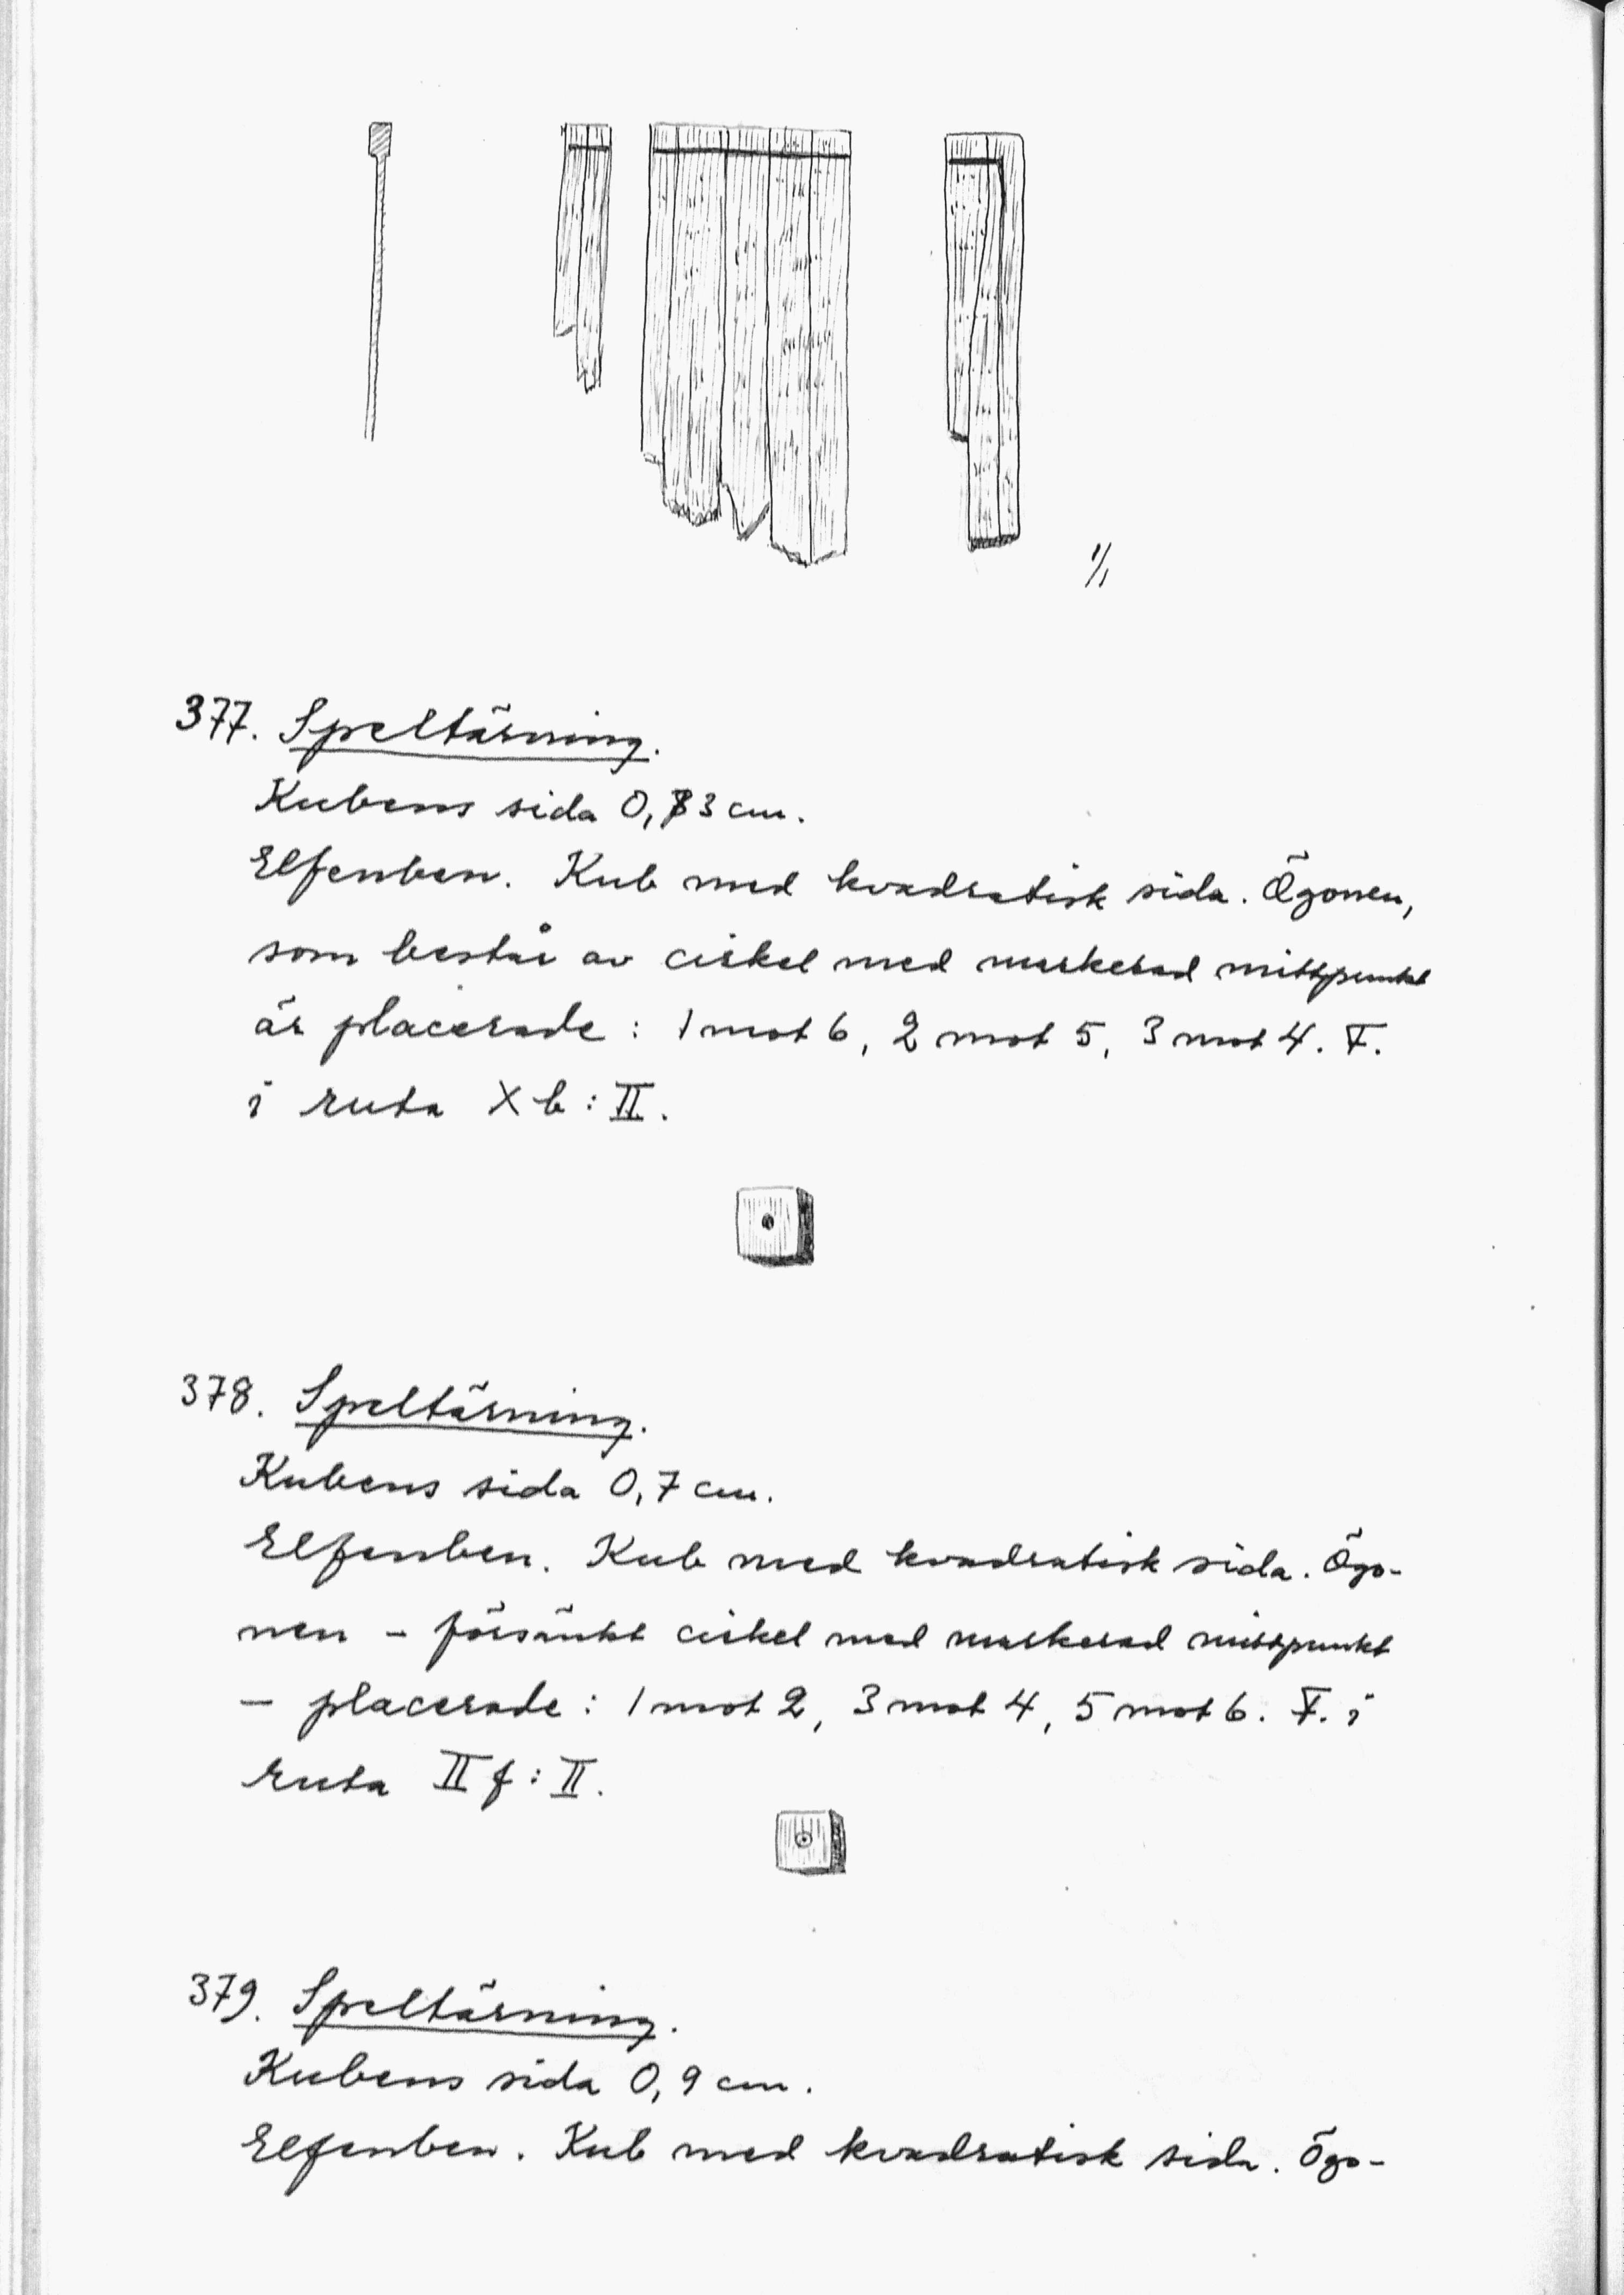 1/1
377. Speltärning.
Kubens sida 0,73 cm.
Elfenben. Kub med kvadratisk sida. Ögonen,
som bestå av cirkel med markerad mittpunkt
är placerade : 1 mot 6, 2 mot 5, 3 mot 4. F.
i ruta X b : II.
378. Speltärning.
Kubens sida 0,7 cm.
Elfenben. Kub med kvadratisk sida. Ögo-
nen – försänkt cirkel med markerad mittpunkt
– placerade : 1 mot 2, 3 mot 4, 5 mot 6. F. i
ruta II f : II.
379. Speltärning.
Kubens sida 0,9 cm.
Elfenben. Kub med kvadratisk sida. Ögo-